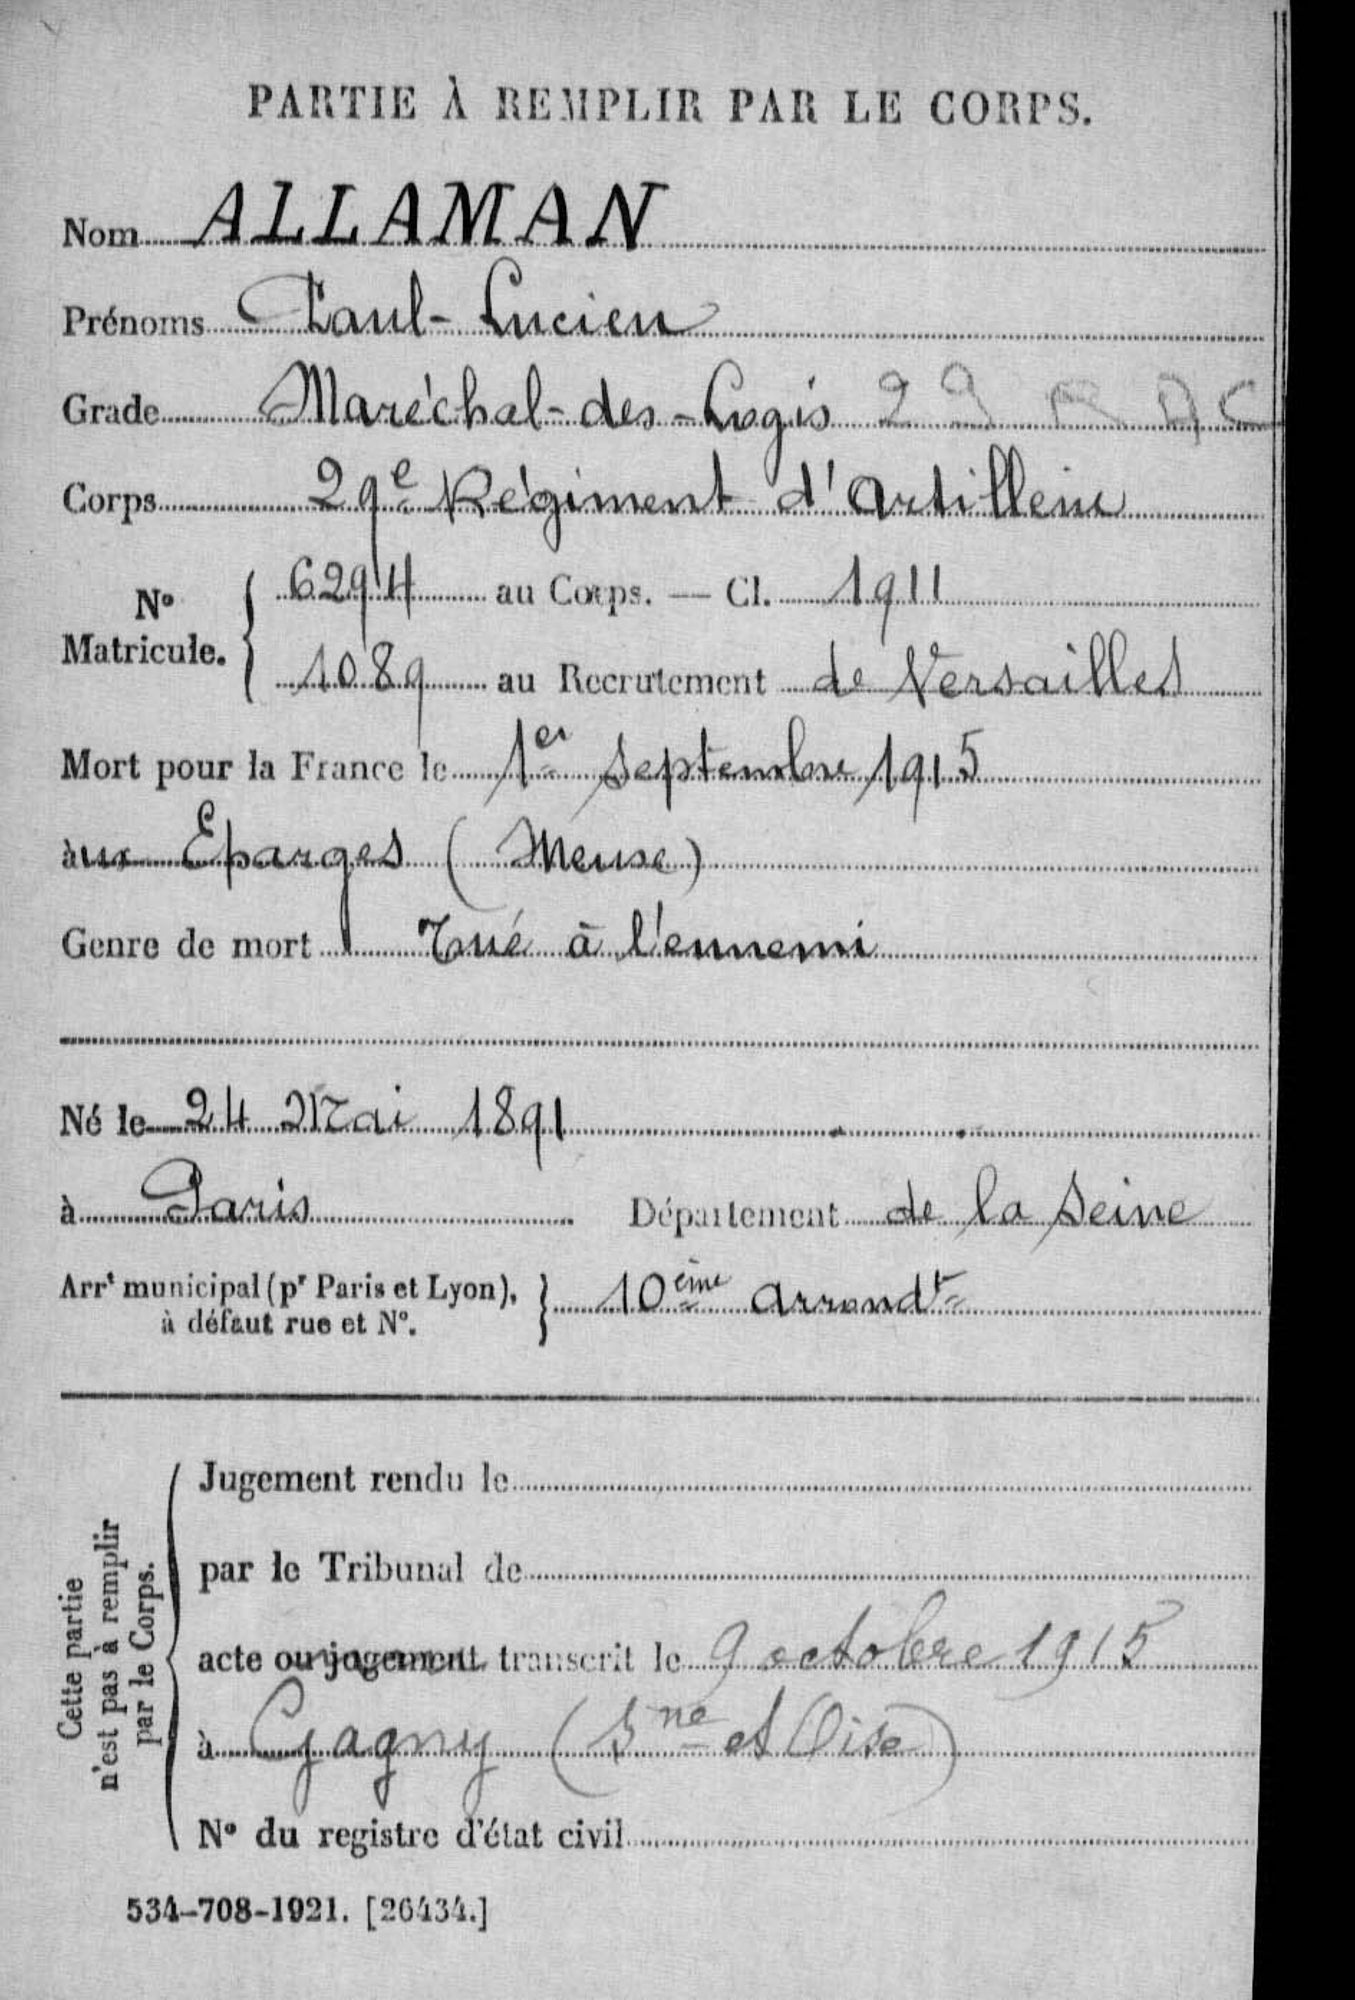 PARTIE À REMPLIR PAR LE CORPS.
Nom ALLAMAN
Prénoms Paul-Lucien
Grade Maréchal-des-Logis 29 R AC
Corps 29e Régiment d'Artillerie
No Matricule. { 6294 au Corps. — Cl. 1911
1089 au Recrutement de Versailles
Mort pour la France le 1er septembre 1915
aux Eparges (Meuse)
Genre de mort Tué à l'ennemi
Né le 24 Mai 1891
à Paris Département de la Seine
Arrt municipal (pr Paris et Lyon), à défaut rue et No. } 10ème arrondt
Cette partie n'est pas à remplir par le Corps.
Jugement rendu le
par le Tribunal de
acte ou jugement transcrit le 9 octobre 1915
à Gagny (Sne et Oise)
No du registre d'état civil
534-708-1921. [26434.]